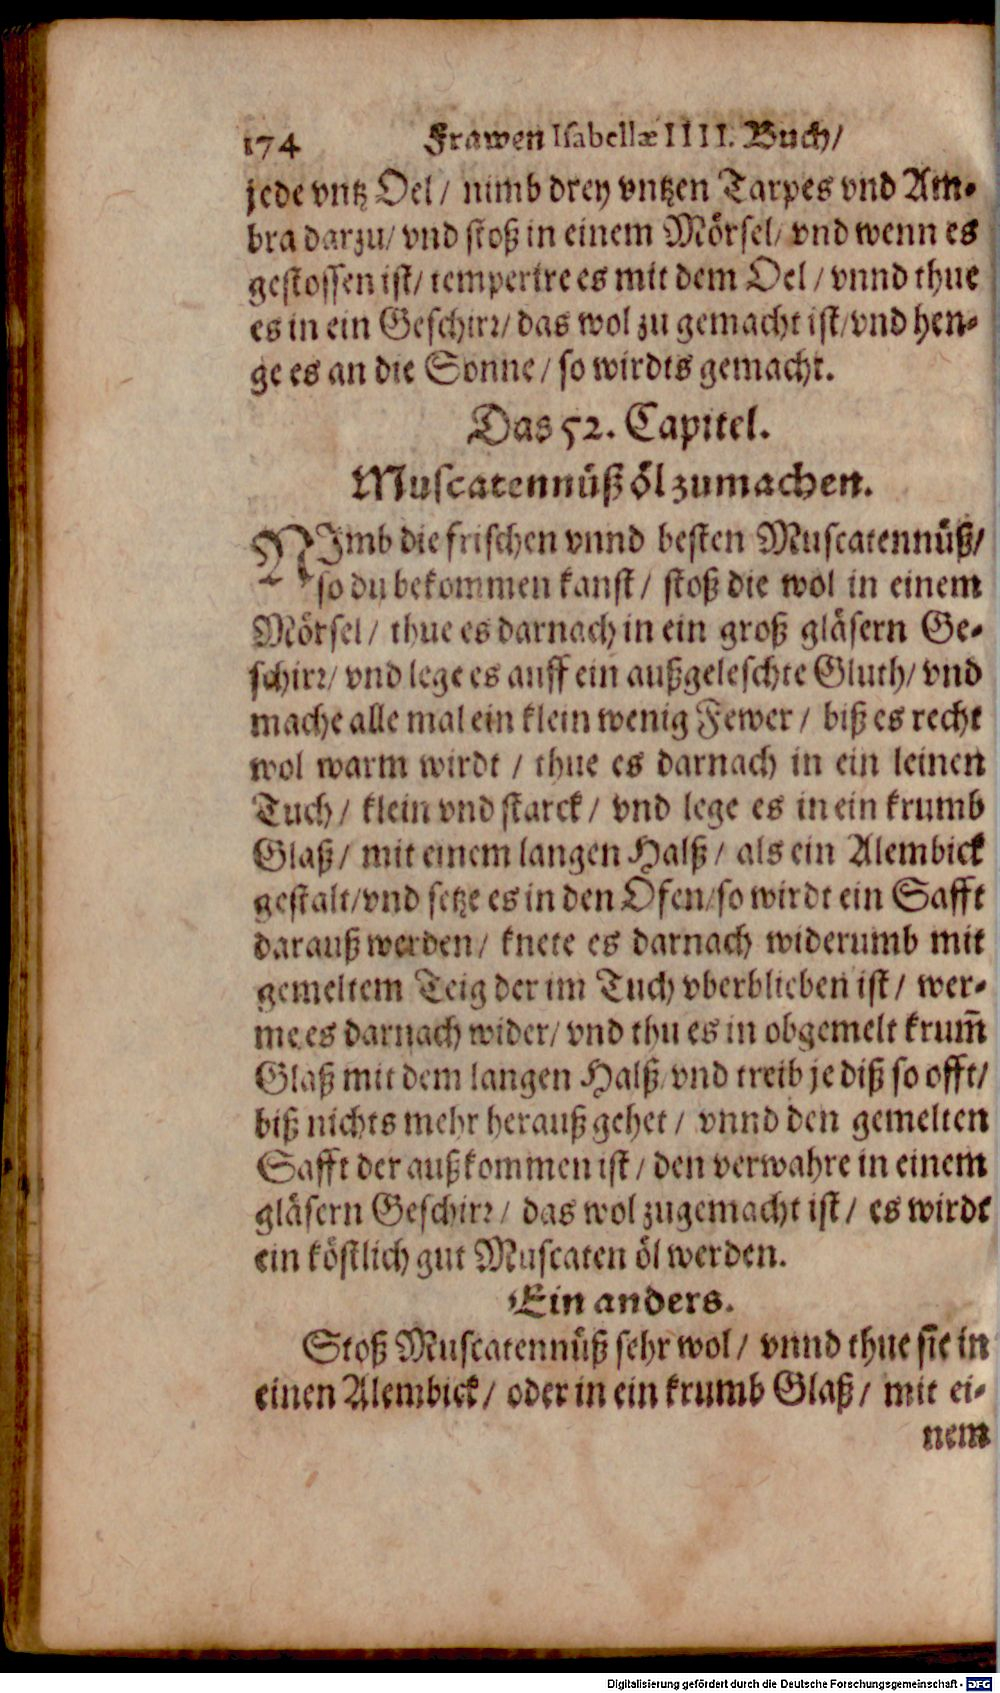 174 Frawen Isabellæ IIII. Buch/
jede vntz Oel / nimb drey vntzen Tarpes vnd Am-
bra darzu/ vnd stoß in einem Mörsel/ vnd wenn es
gestossen ist/ temperire es mit dem Oel / vnnd thue
es in ein Geschirr/ das wol zu gemacht ist/ vnd hen-
ge es an die Sonne / so wirdts gemacht.
Das 52. Capitel.
Muscatennüß öl zumachen.
NImb die frischen vnnd besten Muscatennüß/
so du bekommen kanst / stoß die wol in einem
Mörsel / thue es darnach in ein groß gläsern Ge-
schirr/ vnd lege es auff ein außgeleschte Gluth/ vnd
mache alle mal ein klein wenig Fewer / biß es recht
wol warm wirdt / thue es darnach in ein leinen
Tuch / klein vnd starck / vnd lege es in ein krumb
Glaß / mit einem langen Halß / als ein Alembick
gestalt/ vnd setze es in den Ofen/ so wirdt ein Safft
darauß werden / knete es darnach widerumb mit
gemeltem Teig der im Tuch vberblieben ist / wer-
me es darnach wider/ vnd thu es in obgemelt krum̄
Glaß mit dem langen Halß/ vnd treib je diß so offt/
biß nichts mehr herauß gehet / vnnd den gemelten
Safft der außkommen ist / den verwahre in einem
gläsern Geschirr / das wol zugemacht ist / es wirdt
ein köstlich gut Muscaten öl werden.
Ein anders.
Stoß Muscatennüß sehr wol / vnnd thue sie in
einen Alembick / oder in ein krumb Glaß / mit ei-
nem
Digitalisierung gefördert durch die Deutsche Forschungsgemeinschaft - DFG